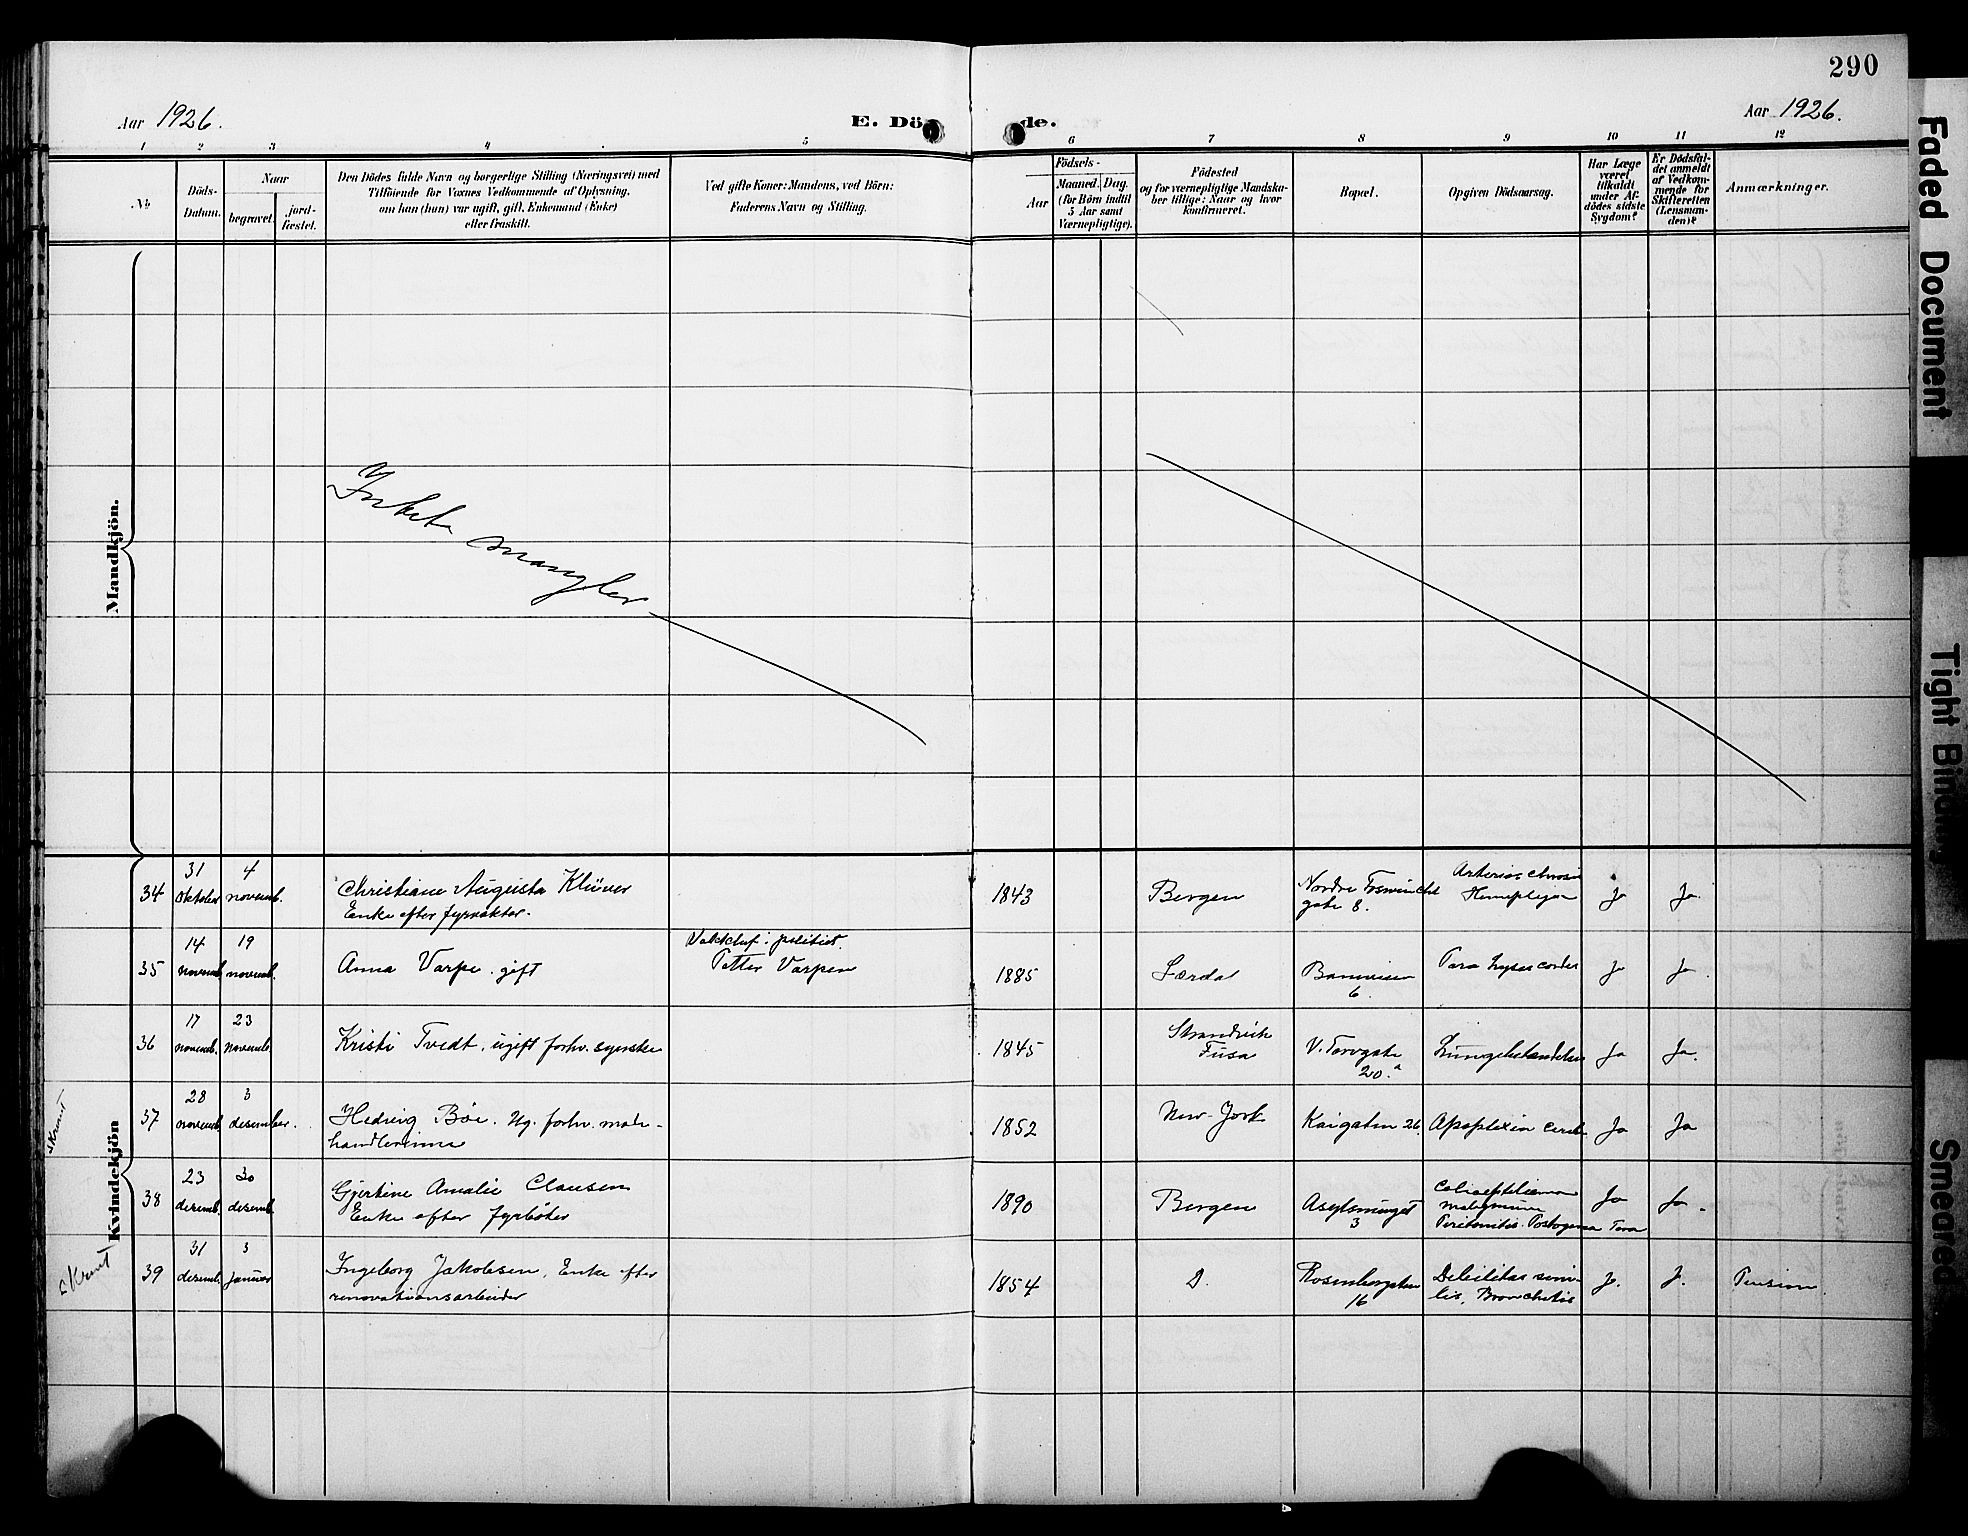 290
Aar 1926.
E. Dö
de.
Aar 1926.
1 2 3 4 5 6 7 8 9 10 11 12
No.
Döds-
Datum.
Naar
begravet.
jord-
fæstet.
Den Dödes fulde Navn og borgerlige Stilling (Næringsvei) med
Tilföiende for Voxnes Vedkommende af Oplysning,
om han (hun) var ugift, gift, Enkemand (Enke)
eller fraskilt.
Ved gifte Koner: Mandens, ved Börn:
Faderens Navn og Stilling.
Födsels-
Aar
Maaned. Dag.
(for Börn indtil
5 Aar samt
Værnepligtige).
Födested
og for værnepligtige Mandska-
ber tillige: Naar og hvor
konfirmeret.
Bopæl.
Opgiven Dödsaarsag.
Har Læge
været
tilkaldt
under Af-
dödes sidste
Sygdom?
Er Dödsfal-
det anmeldt
af Vedkom-
mende for
Skifteretten
(Lensman-
den)?
Anmærkninger.
Mandkjön.
Intet mangler
Kvindekjön
34
31
oktober
4
novemb.
Christiane Augusta Klüver
Enke efter
1843
Bergen
Nordre
gate 8.
Ja
Ja.
35
14
novemb.
19
novemb.
Anna Varpe. gift
politiet.
Petter Varpen
1885
Lærdal
6.
cordis
Ja
Ja.
36
17
novemb.
23
novemb.
Kristi Tvedt. ugift forhv. syerske
1845
Strandvik
Fusa
V. Torvgate
20.a
Ja
Ja.
37
28
novemb.
3
desember.
Hedvig Böe. Ug. forhv. mote-
handlerinne
1852
New-York
Kaigaten 26.
Apoplexia cereb.
Ja
Ja
38
23
desemb.
30
desemb.
Gjertine Amalie Clausen
Enke efter fyrböter
1890
Bergen
Asylsmuget
3
Peritonitis.
Ja
Ja.
39
31
desemb.
3
januar
Ingeborg Jakobsen, Enke efter
renovationsarbeider
1854
D.
Rosenbergsgaten
16
Debilitas seni-
lis, Bronchitis
J.
J.
Pension.
Faded Document
Tight Binding
Smeared